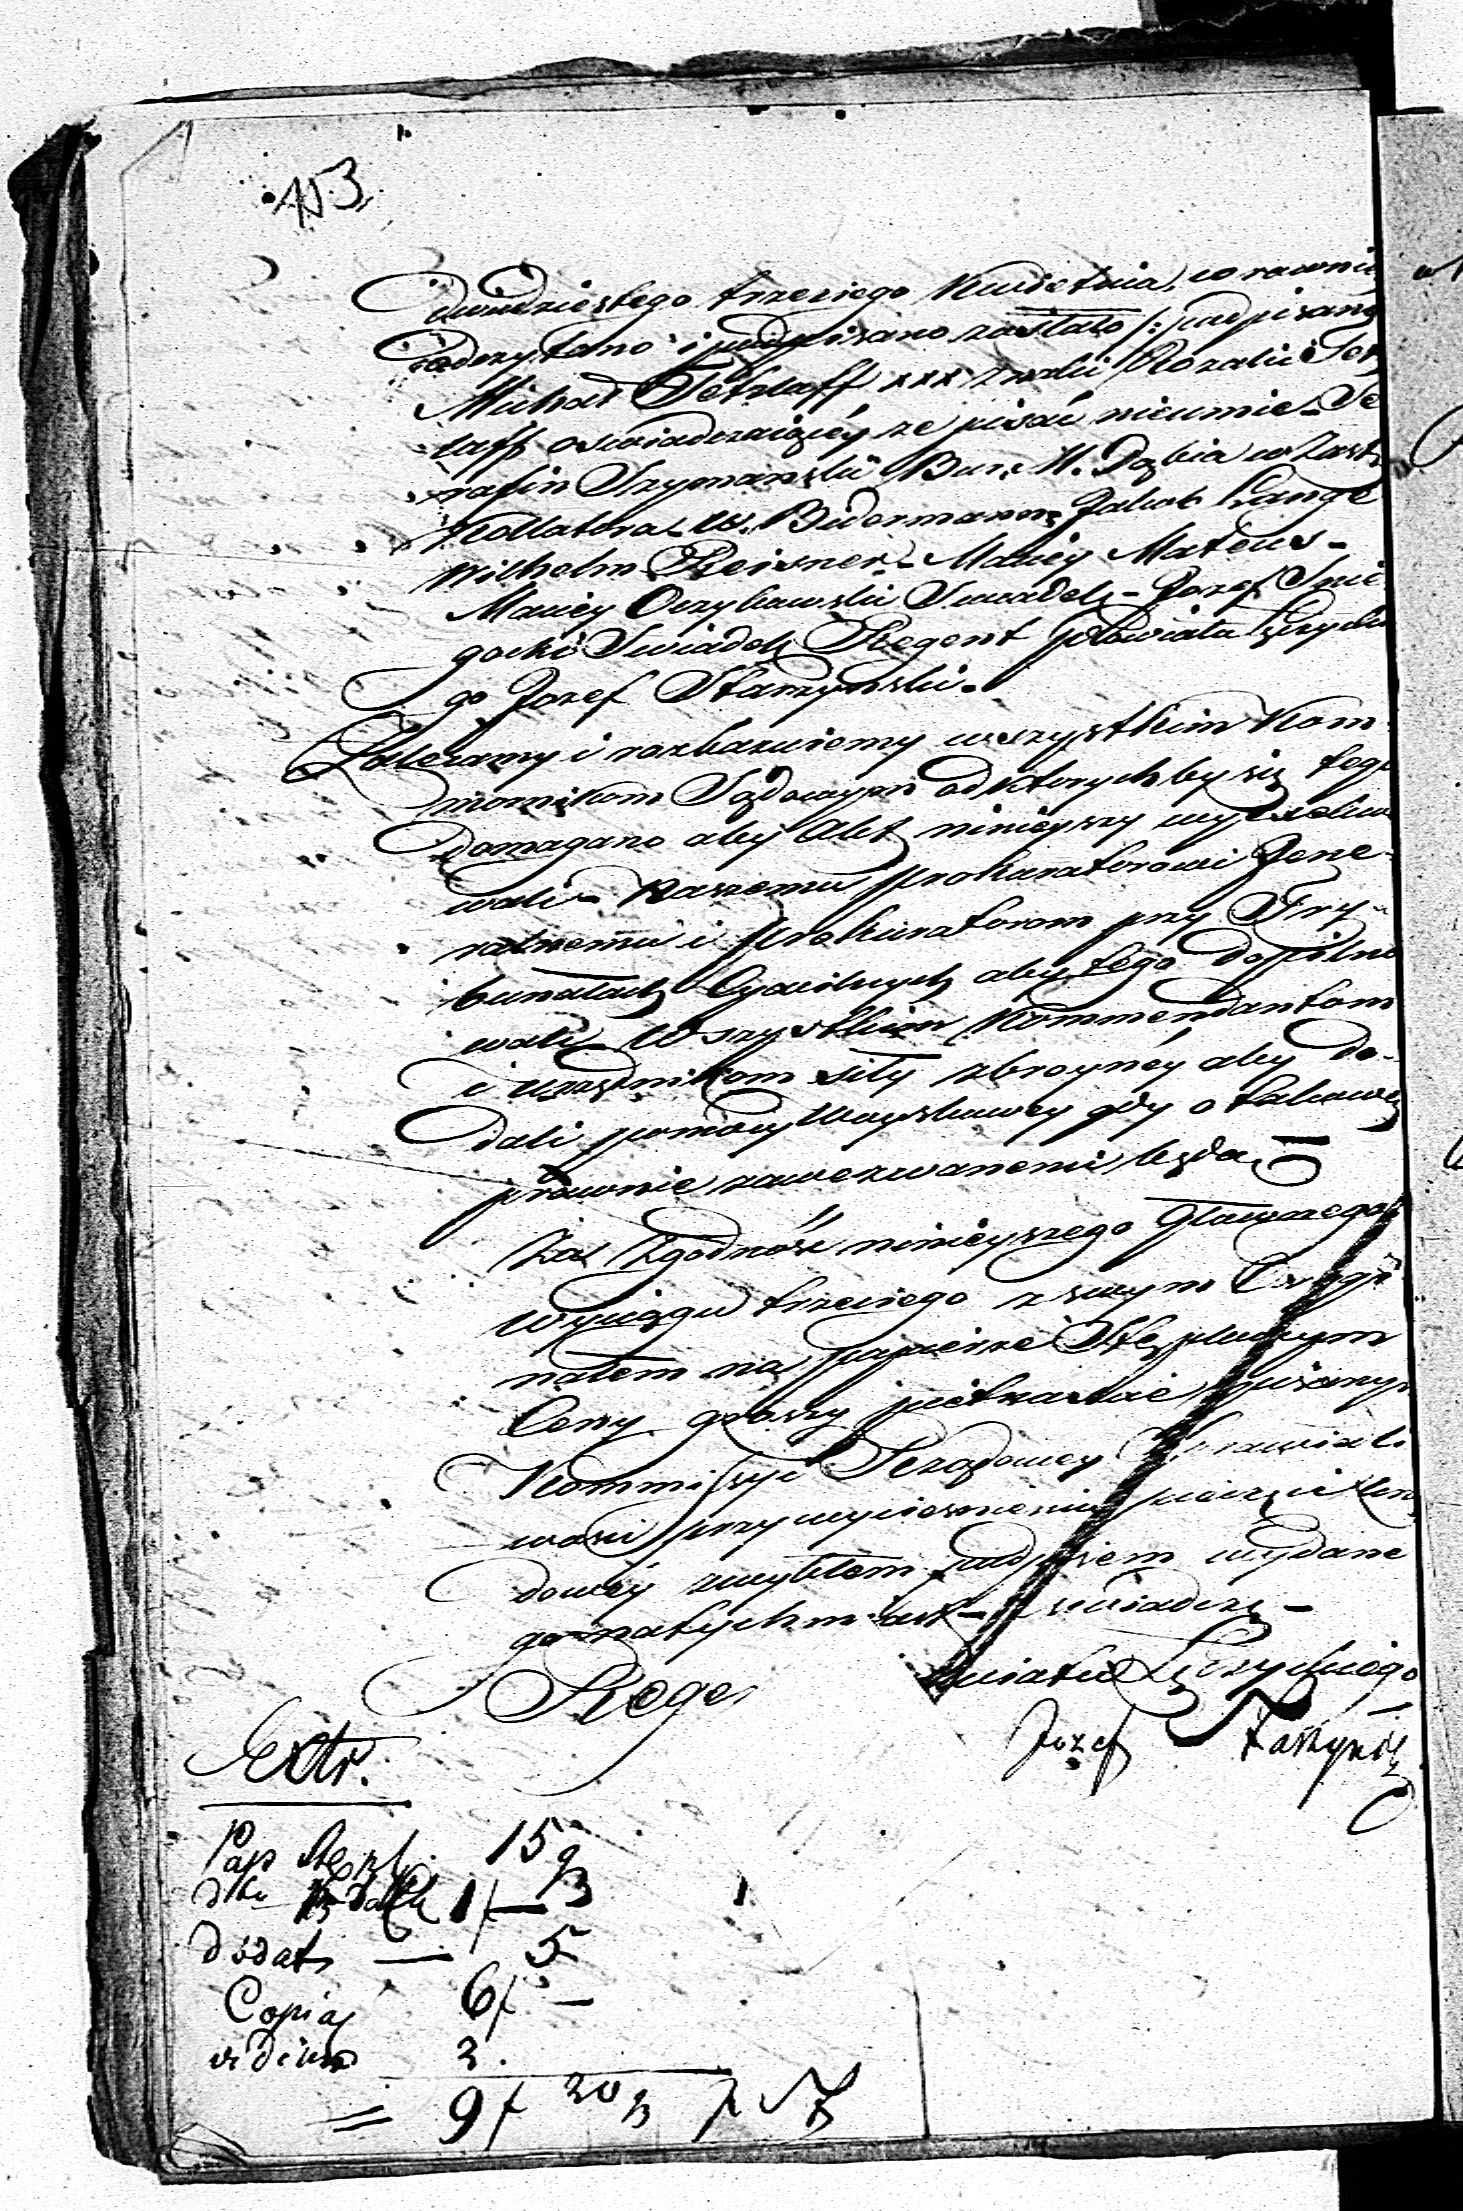 153
dwudziestego trzeciego Kwietnia, co rawnie
odczytano i podpisano zostało /: podpisano
Michał Tetzlaff xxx znaki Rozalii Tetz
laff oswiadczaiącéy że pisać nieumie - Se
rafin Szymanski Bur. M. Dąbia w Zast:
Kollatora - W. Bidermann, Jakob Lange
Wilhelm Reisner - Maciey Mateus -
Maciey Orzykowski Swiadek - Jozef Snie
gocki Swiadek Regent Powiatu Łęczyckie
go Jozef Starzynski.
Zalecamy i rozkazuiemy wszystkim Kom
mornikom Sądowym od ktorych by się tego
domagano aby Akt ninieyszy wyexekwo
wali - Naszemu Prokuratorowi Gene
ralnemu i Prokuratorom przy Try-
bunałach Cywilnych aby tego dopilno
wali - Wszystkim Kommendantom
i urzędnikom siły zbroynéy aby do-
dali pomocy Woyskowey gdy o takową
prawnie zawezwanemi będą
Za Zgodność ninieyszego Głownego
Wyciągu trzeciego z swym Orygi
nałem na papierze Stęplowym
Ceny groszy pietnascie pisanym
Kommissyi Rządowey Sprawiedli
wosci przy wycisnieniu pieczęci
dowéy zwykłem podpisem wydane
go natychmiast - swiadczę -
Rege wiatu Łęczyckiego
Jozef Starzynski
Extr.
Pap stępl. 15 g
1 f —
dodat — 5
Copia 6 f —
vidim 2.
= 9 f 20 g